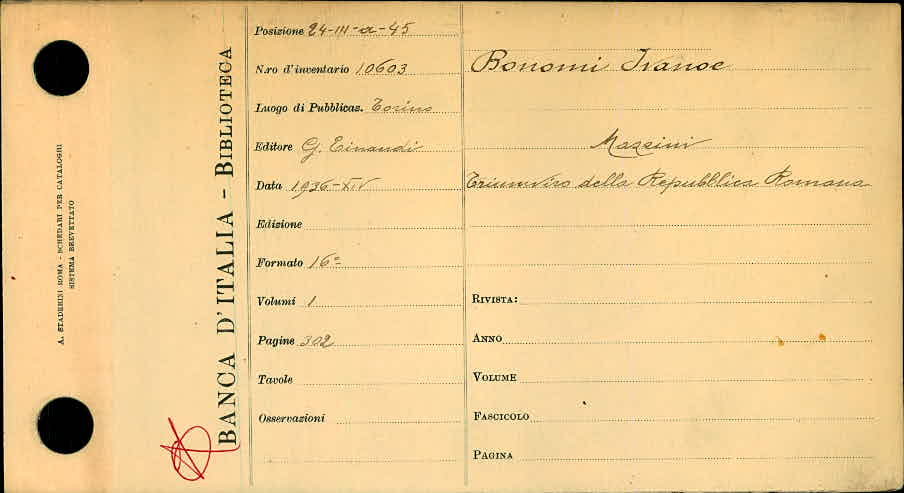 A. STADERINI ROMA - SCHEDARI PER CATALOGHI
SISTEMA BREVETTATO
BANCA D'ITALIA - BIBLIOTECA
Posizione 24-III-a-45
N.ro d'inventario 10603
Luogo di Pubblicaz. Torino
Editore G. Einaudi
Data 1936-XIV
Edizione
Formato 16°
Volumi 1
Pagine 302
Tavole
Osservazioni
Bonomi Ivanoe
Mazzini
Triumviro della Repubblica Romana
RIVISTA:
ANNO
VOLUME
FASCICOLO
PAGINA